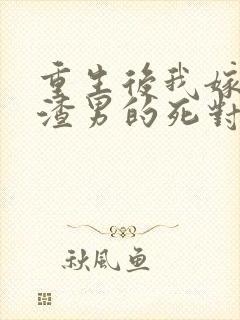 重生後我嫁
渣男的死對
秋風魚